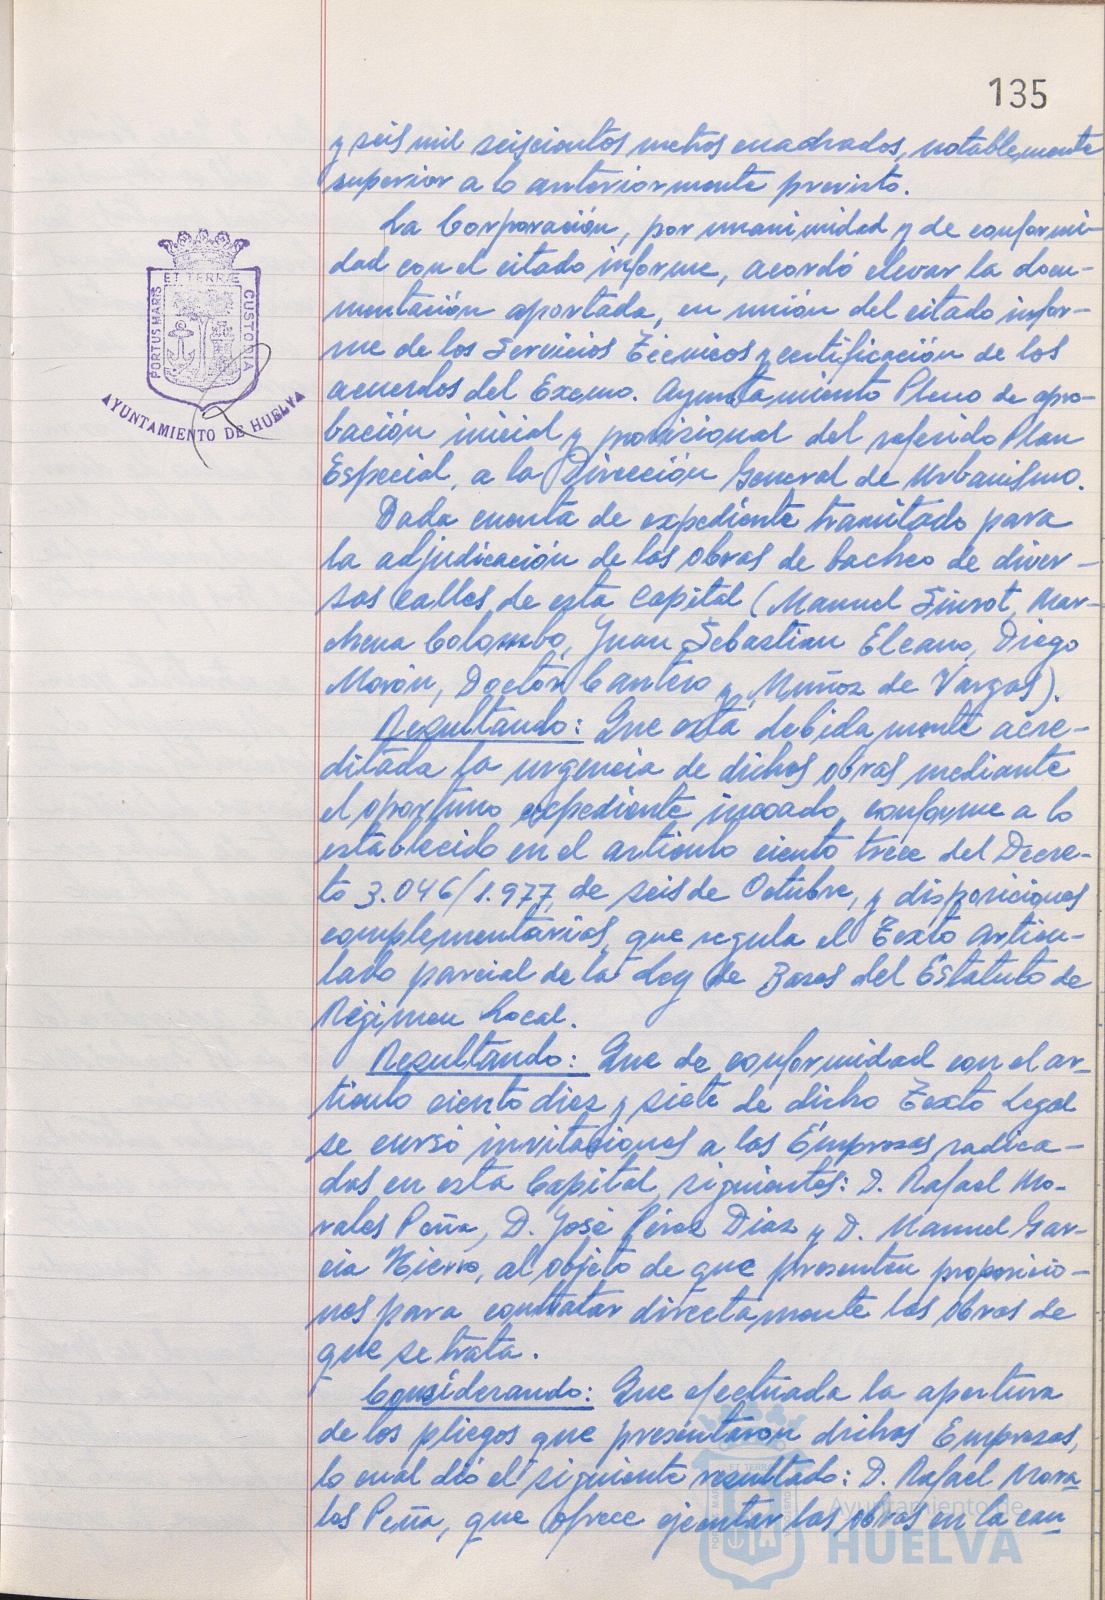 135
y seis mil seiscientos metros cuadrados, notablemente
superior a lo anteriormente previsto.
La Corporación, por unanimidad y de conformi-
dad con el citado informe, acordó elevar la docu-
mentación aportada, en unión del citado infor-
me de los Servicios Técnicos y certificación de los
acuerdos del Excmo. Ayuntamiento Pleno de apro-
bación inicial y provisional del referido Plan
Especial, a la Dirección General de Urbanismo.
Dada cuenta de expediente tramitado para
la adjudicación de las obras de bacheo de diver-
sas calles de esta Capital (Manuel Siurot, Mar-
chena Colombo, Juan Sebastian Elcano, Diego
Morón, Doctor Cantero y Muñoz de Vargas).
Resultando: Que está debidamente acre-
ditada la urgencia de dichas obras mediante
el oportuno expediente incoado, conforme a lo
establecido en el articulo ciento trece del Decre-
to 3.046/1.977, de seis de Octubre, y disposiciones
complementarias, que regula el Texto articu-
lado parcial de la Ley de Bases del Estatuto de
Régimen Local.
Resultando: Que de conformidad con el ar-
ticulo ciento diez y siete de dicho Texto Legal
se cursó invitaciones a las Empresas radica-
das en esta Capital, siguientes: D. Rafael Mo-
rales Peña, D. José Pérez Diaz y D. Manuel Gar-
cia Hierro, al objeto de que presenten proposicio-
nes para contratar directamente las obras de
que se trata.
Considerando: Que efectuada la apertura
de los pliegos que presentaron dichas Empresas,
lo cual dió el siguiente resultado: D. Rafael Mora-
les Peña, que ofrece ejecutar las obras en la can-
PORTUS MARIS ET TERRÆ CUSTODIA
AYUNTAMIENTO DE HUELVA
Ayuntamiento de
HUELVA